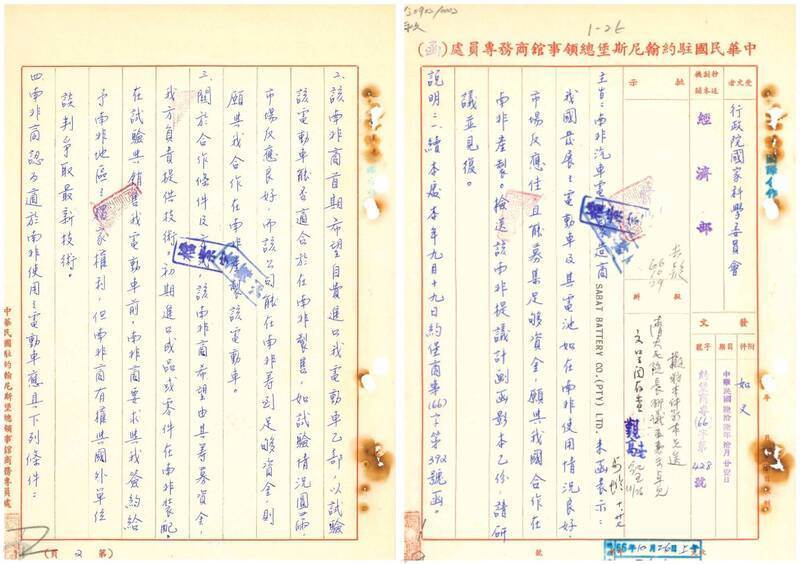 1-26
中華民國駐約翰尼斯堡總領事館商務專員處(函)
受文者
行政院國家科學委員會
抄送副本機關
經濟部
批示
擬辦
擬影本件影本送
文呈閱存查
發文
附件
如文
日期
中華民國陸拾陸年拾月廿四日
字號
約堡商專(66)字第428號
主旨：南非汽車電池製造商 SABAT BATTERY CO.(PTY) LTD. 來函表示：
我國發展之電動車及其電池如在南非使用情況良好，
市場反應佳且能募集足够資金，願與我國合作在
南非產製。檢送該南非提議計劃函影本乙份，請研
議並見復。
說明：一、續本處本年九月十九日約堡商專(66)字第392號函。
66年10月26日上午
二、該南非商首期希望自費進口我電動車乙部，以試驗
該電動車能否適合於在南非製售，如試驗情況圓滿，
市場反應良好，而該公司能在南非籌到足够資金，則
願與我合作在南非產製該電動車。
三、關於合作條件及方式，該南非商希望由其籌募資金，
我方負責提供技術，初期進口成品或零件在南非裝配。
在試驗與銷售我電動車前，南非商要求與我簽約給
予南非地區之獨家權利，但南非商有權與國外單位
談判爭取最新技術。
四、南非商認為適於南非使用之電動車應具下列條件：
中華民國駐約翰尼斯堡總領事館商務專員處
第2頁